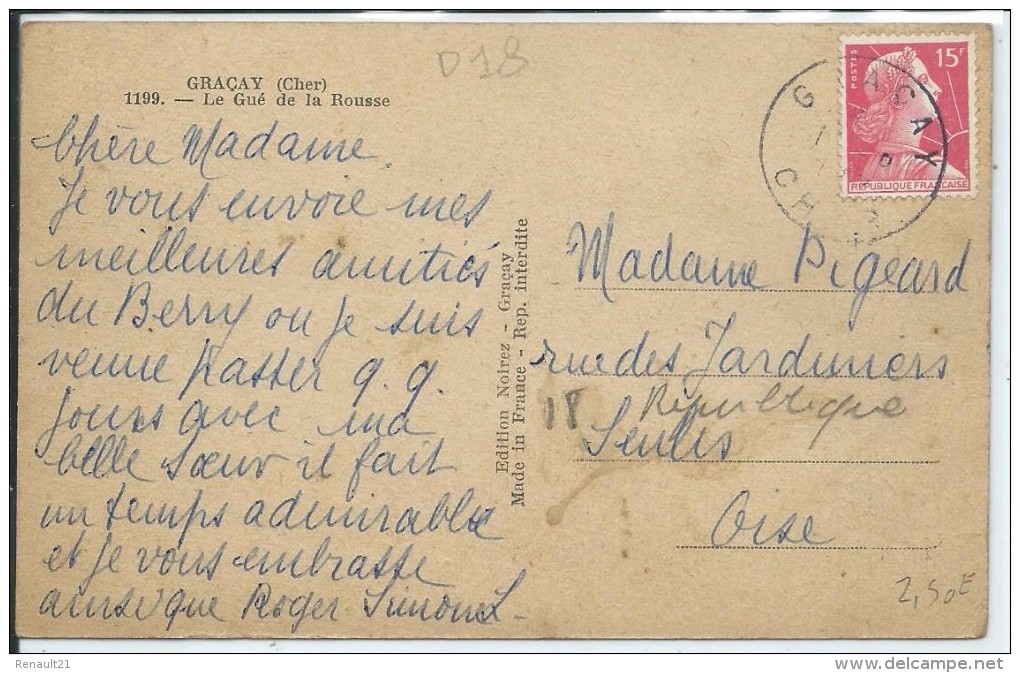 D18
GRAÇAY (Cher)
1199. — Le Gué de la Rousse
Chère Madame.
Je vous envoie mes
meilleures amitiés
du Berry ou je suis
venue passer q. q.
jours avec ma
belle sœur il fait
un temps admirable
et je vous embrasse
ainsi que Roger Simone
Edition Noirez - Graçay
Made in France - Rep. interdite
POSTES
15F
REPUBLIQUE FRANÇAISE
GRAÇAY
CHER
Madame Pigeard
rue des Jardiniers
18 République
Senlis
Oise
2,50E
Renault21
delcampe.net